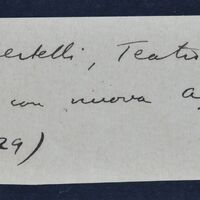 ertelli, Teatr
con nuova a
29)